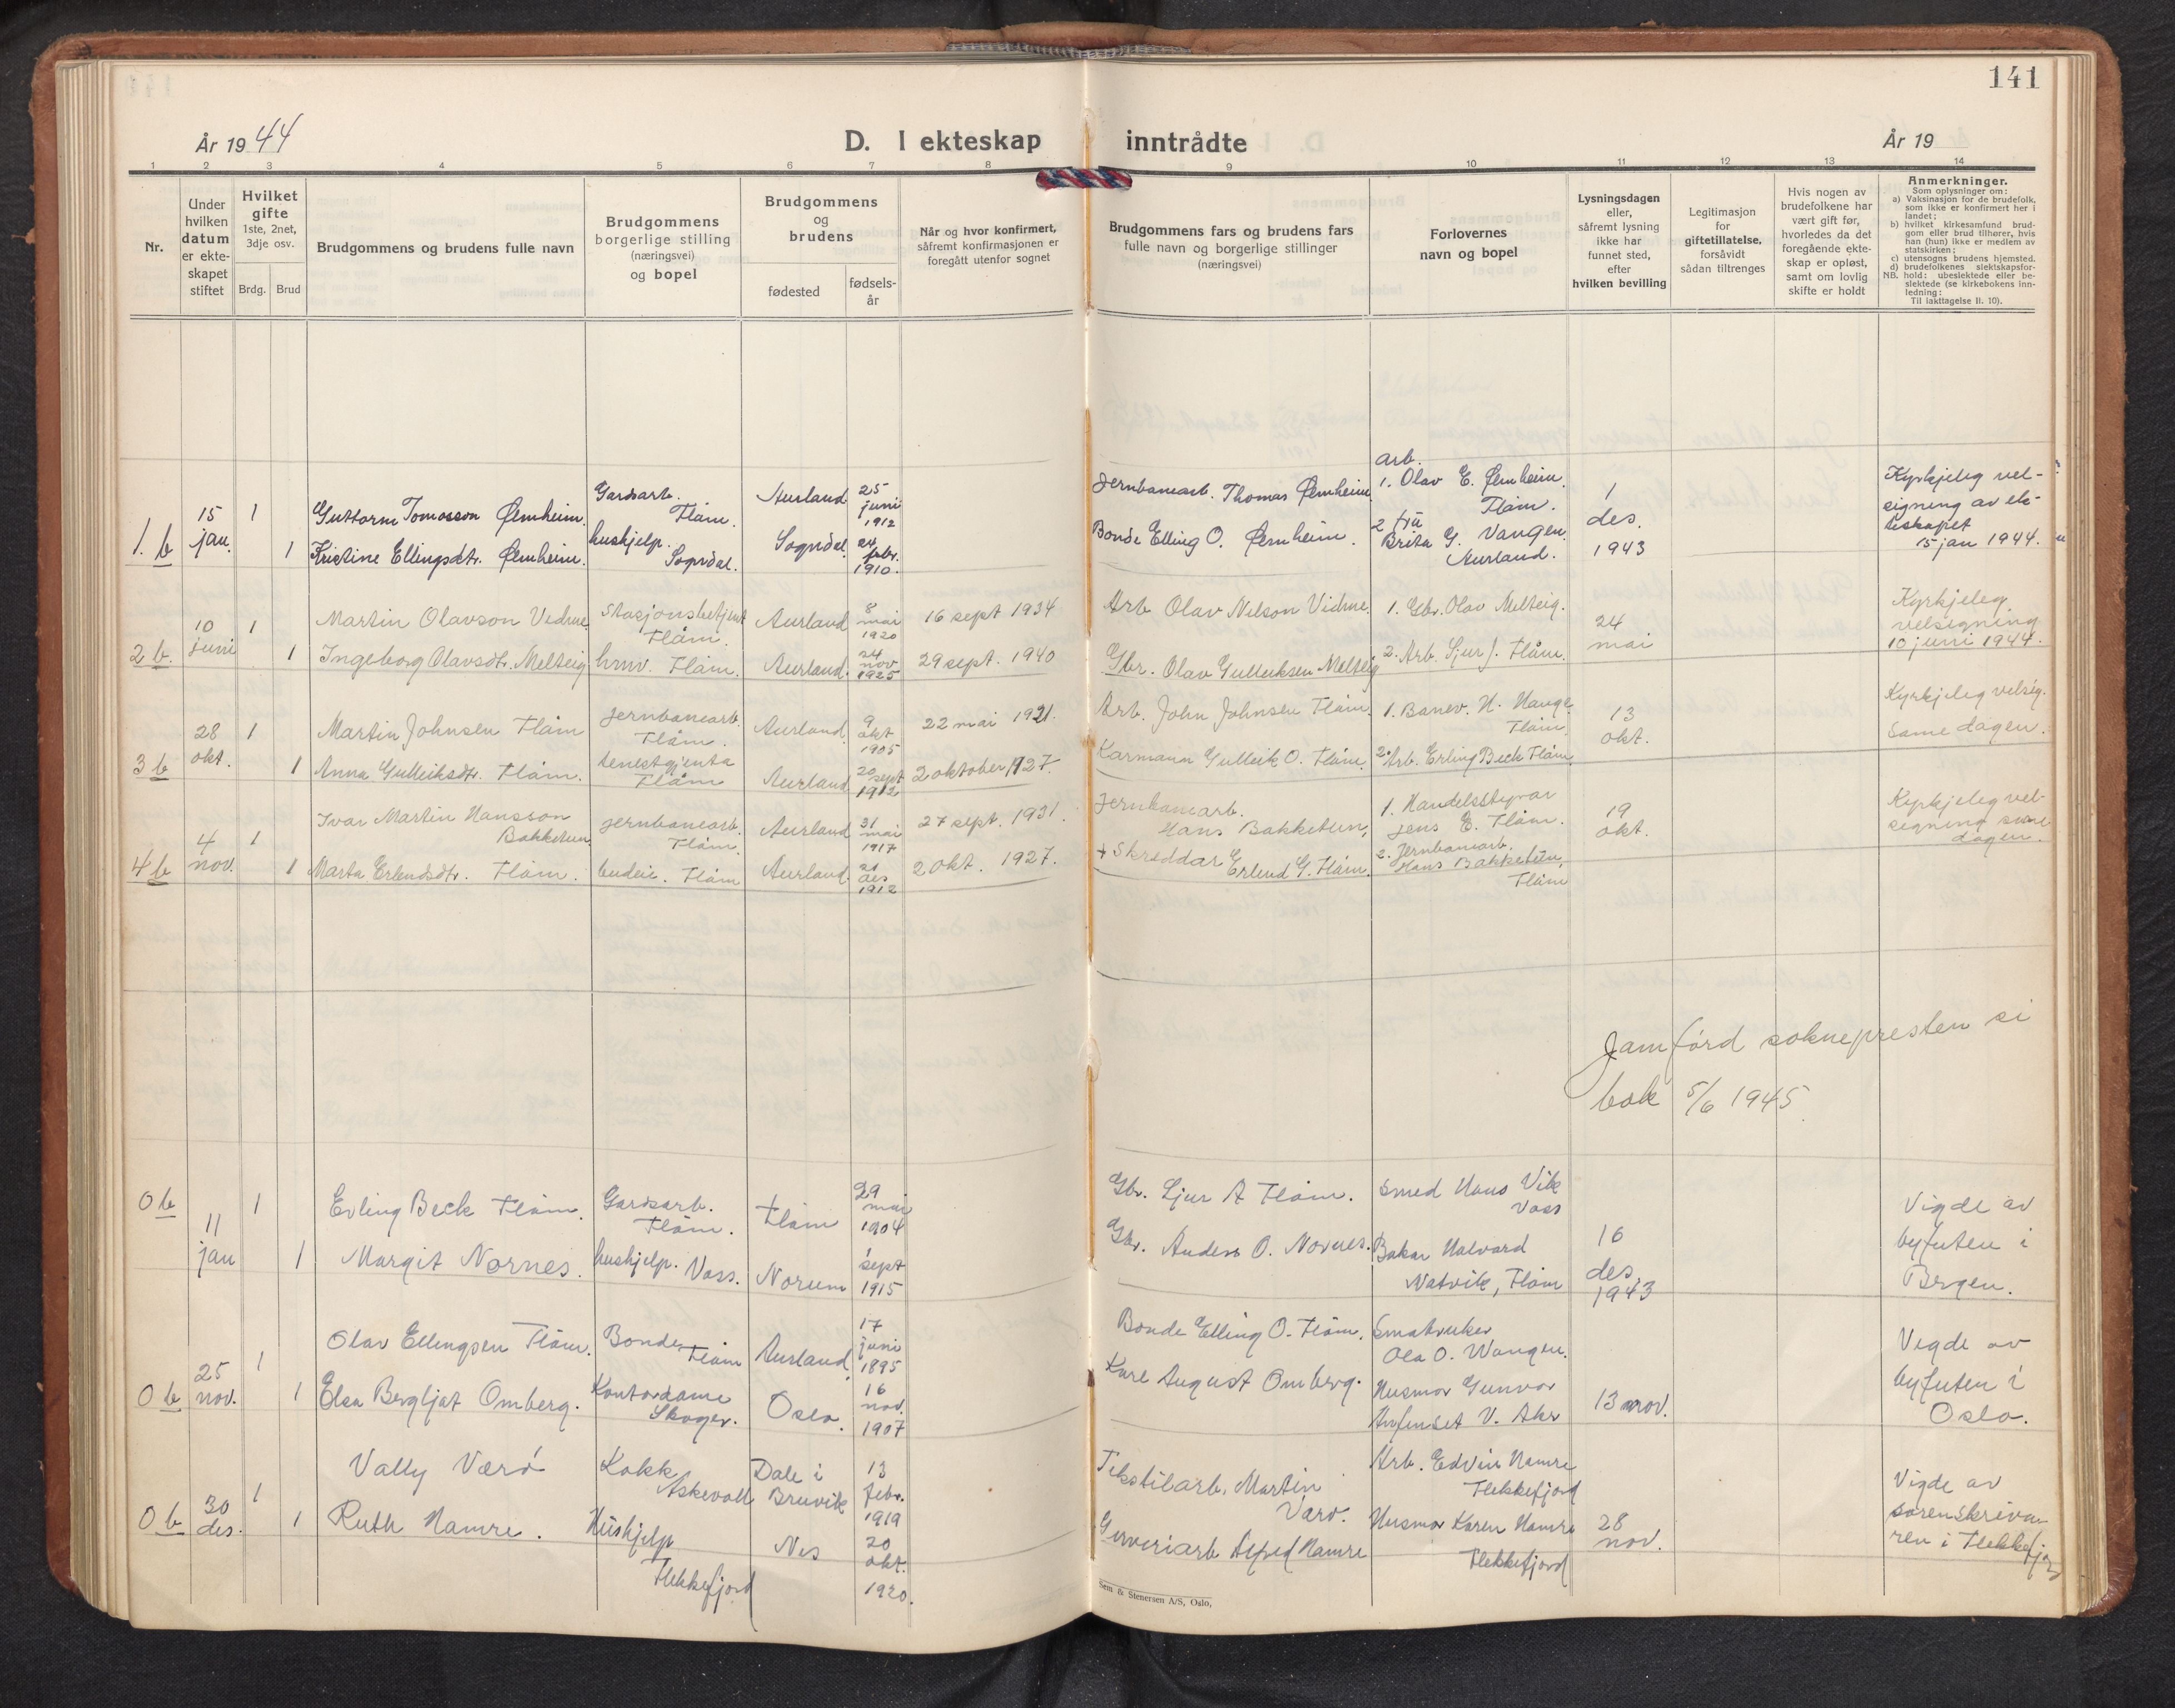 141
År 1944
D. I ekteskap inntrådte
År 19
1 2 3 4 5 6 7 8 9 10 11 12 13 14
Nr.
Under
hvilken
datum
er ekte-
skapet
stiftet
Hvilket
gifte
1ste, 2net,
3dje osv.
Brdg. Brud
Brudgommens og brudens fulle navn
Brudgommens
borgerlige stilling
(næringsvei)
og bopel
Brudgommens
og
brudens
fødested
fødsels-
år
Når og hvor konfirmert,
såfremt konfirmasjonen er
foregått utenfor sognet
Brudgommens fars og brudens fars
fulle navn og borgerlige stillinger
(næringsvei)
Forlovernes
navn og bopel
Lysningsdagen
eller,
såfremt lysning
ikke har
funnet sted,
efter
hvilken bevilling
Legitimasjon
for
giftetillatelse,
forsåvidt
sådan tiltrenges
Hvis nogen av
brudefolkene har
vært gift før,
hvorledes da det
foregående ekte-
skap er opløst,
samt om lovlig
skifte er holdt
Anmerkninger.
Som oplysninger om:
a) Vaksinasjon for de brudefolk,
som ikke er konfirmert her i
landet;
b) hvilket kirkesamfund brud-
gom eller brud tilhører, hvis
han (hun) ikke er medlem av
statskirken;
c) utensogns brudens hjemsted.
d) brudefolkenes slektskapsfor-
NB. hold: ubeslektede eller be-
slektede (se kirkebokens inn-
ledning:
Til iakttagelse II. 10).
1. b
15
jan.
1
Guttorm Tomasson Ølnheim.
Gardsarb.
Flåm.
Aurland
25
juni
1912
Jernbanearb. Thomas Ølnheim
arb.
1. Olav E. Ølnheim.
Flåm.
1
des.
1943
Kyrkjeleg vel-
signing av ek-
teskapet
15 jan 1944.
1
Kristine Ellingsdtr. Ølnheim.
hushjelp.
Sogndal.
Sogndal.
24
febr.
1910.
Bonde Elling O. Ølnheim.
2 frü
Brita G. Vangen
Aurland.
2 b.
10
juni
1
Martin Olavson Vidme.
Stasjonsbetjent
Flåm.
Aurland
8
mai
1920
16 sept 1934
Arb Olav Nelson Vidme.
1. Gbr. Olav Melteig.
24
mai
Kyrkjeleg
velsigning
10 juni 1944.
1
Ingeborg Olavsdtr. Melteig
hmv. Flåm.
Aurland.
24
nov
1925
29 sept. 1940
Gbr. Olav Gulleiksen Melteig
2. Arb. Sjur J. Flåm.
3 b
28
okt.
1
Martin Johnsen Flåm
Jernbanearb.
Flåm.
Aurland
9
okt
1905
22 mai 1921.
Arb. John Johnsen Flåm.
1. Banev. H. Hauge
Flåm
13
okt.
Kyrkjeleg velsig.
same dagen.
1
Anna Gulleiksdtr. Flåm.
tenestgjenta
Flåm
Aurland
20
sept
1912
2 oktober 1927.
Kårmann Gulleik O. Flåm.
2. Arb. Erling Beck Flåm
4 b
4
nov.
1
Ivar Martin Hansson
Bakketun
Jernbanearb.
Flåm.
Aurland
31
mai
1917
27 sept. 1931.
Jernbanearb.
Hans Bakketun,
1. Handelsstyrar
Jens E. Flåm.
19
okt.
Kyrkjeleg vel-
signing same
dagen.
1
Marta Erlendsdtr. Flåm.
budeie. Flåm
Aurland
21
des
1912
2 okt. 1927.
+ Skreddar
Erlend G. Flåm.
2. Jernbanearb.
Hans Bakketün,
Flåm
Jamførd soknepresten si
bok 5/6 1945.
0 b
11
jan
1
Erling Beck Flåm.
Gardsarb.
Flåm.
Flåm
29
mai
1904
Gbr. Sjur A Flåm.
Smed Hans Vik
Voss
16
des.
1943
Vigde av
byfuten i
Bergen.
1
Margit Nornes.
hushjelp. Voss.
Norum
1
sept
1915
Gbr. Anders O. Nornes.
Bakar Halvard
Natvik, Flåm
0 b
25
nov.
1
Olav Ellingsen Flåm.
Bonde
Flåm
Aurland
17
juni
1895
Bonde Elling O. Flåm.
Småbruker
Ola O. Wangen.
13 nov.
Vigde av
byfuten i
Oslo.
1
Elsa Bergljot Omberg.
Kontordame
Skoger.
Oslo.
16
nov.
1907
Kare August Omberg.
Husmor Gunvor
V. Aker
0 b
30
des.
1
Vally Værø
Kokk
Askevoll
Dale i
Bruvik
13
febr.
1919
Tekstilarb. Martin
Værø.
Arb. Edvin Hamre
Flekkefjord
28
nov.
Vigde av
sorenskriva-
ren i Flekkefjord
1
Ruth Hamre.
Hüshjelp
Flekkefjord
Nes
20
okt.
1920.
Garveriarb Alfred Hamre
Husmor Karen Hamre
Flekkefjord
Sem & Stenersen A/S, Oslo.